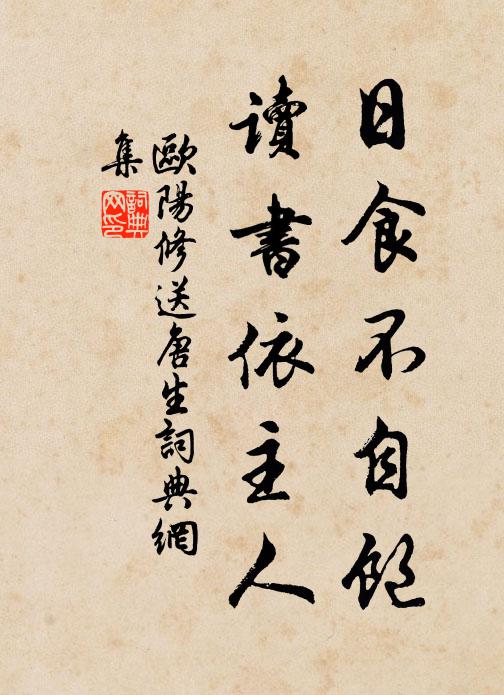 日食不自飽
讀書依主人
歐陽修送唐生詞典網
集
詞典网印